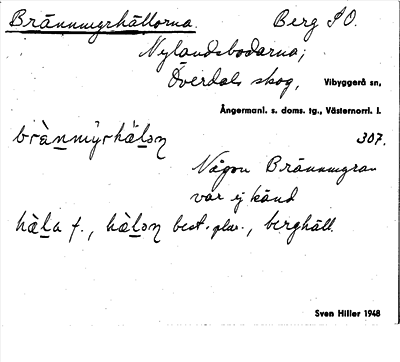 Brännmyrhällorna. Berg SO.
Nylandsbodarna,
Överdals skog, Vibyggerå sn,
Ångermanl. s. doms. tg., Västernorrl. l.
brä̀nmỳrhäḷo̱ṇ 307.
Någon Brännmyran
var ej känd
hä̀ḷa f., hä̀ḷo̱ṇ best. plur., berghäll.
Sven Hiller 1948